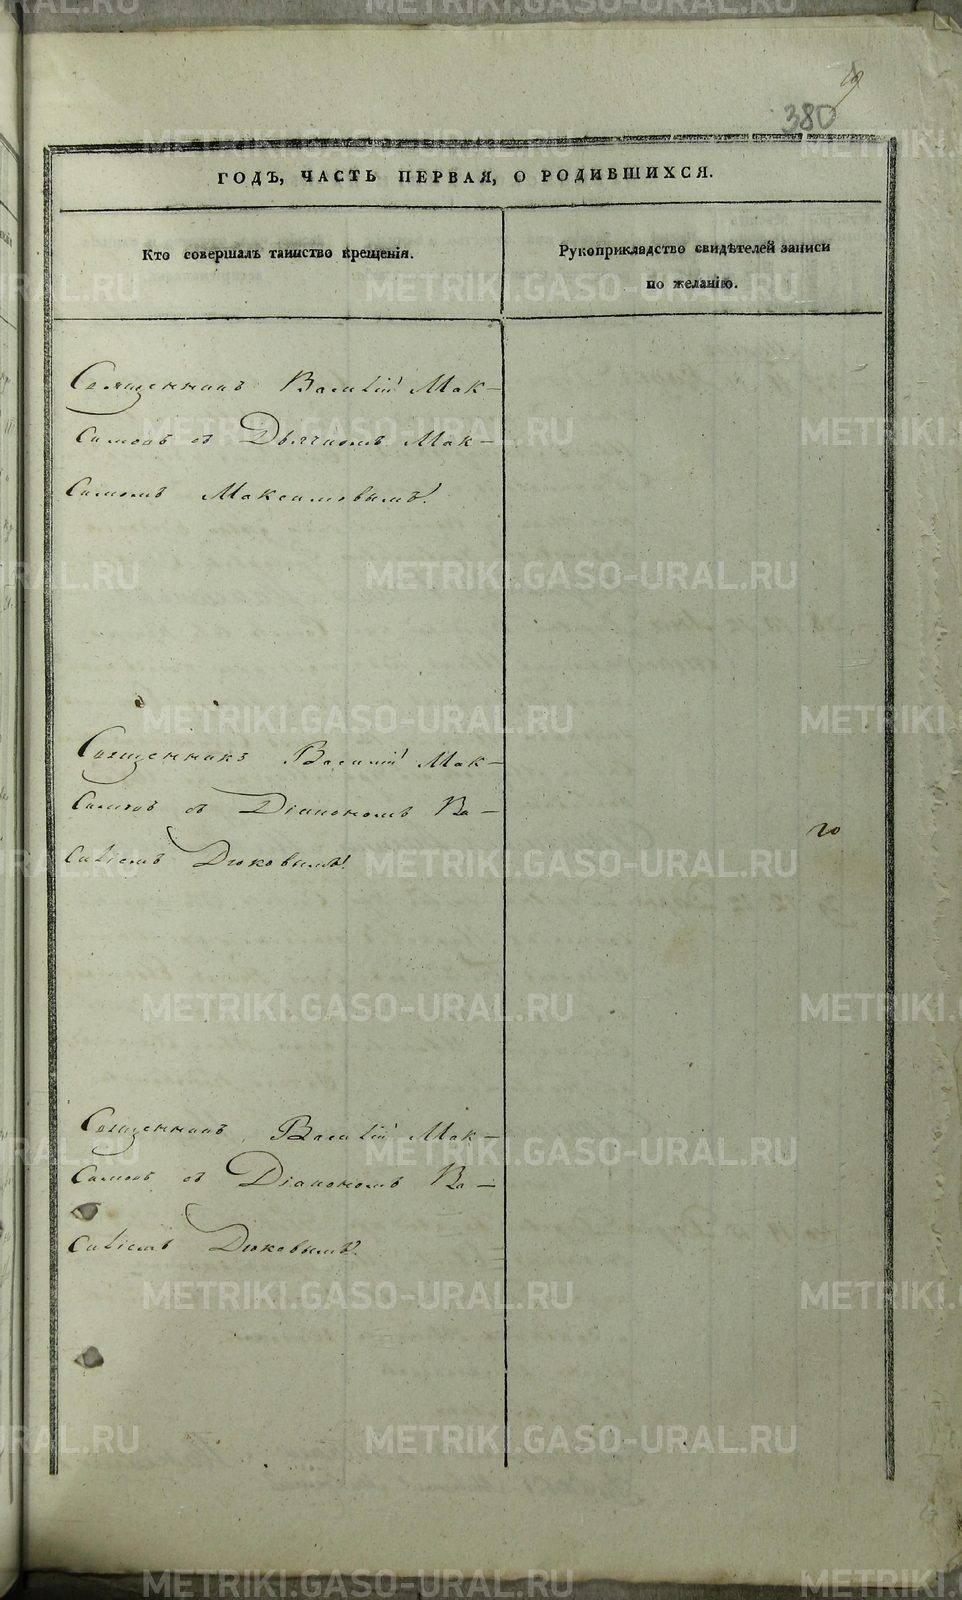 19
380
ГОДЪ, ЧАСТЬ ПЕРВАЯ, О РОДИВШИХСЯ.
Кто совершалъ таинство крещенія.
Рукоприкладство свидѣтелей записи
по желанію.
Священникъ Василій Мак-
симовъ съ Дьячкомъ Мак-
симомъ Максимовымъ.
Священникъ Василій Мак-
симовъ съ Діакономъ Ва-
силіемъ Дюковымъ.
20
Священникъ Василій Мак-
симовъ съ Діакономъ Ва-
силіемъ Дюковымъ.
METRIKI.GASO-URAL.RU